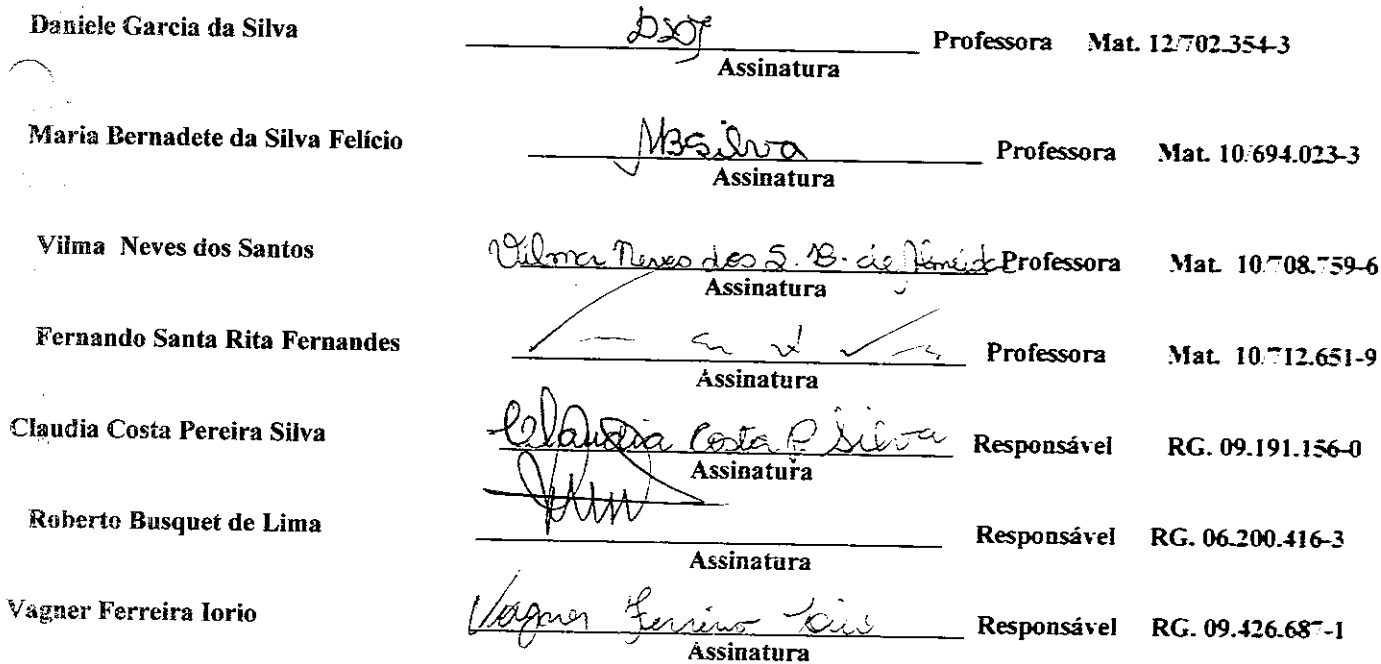 Daniele Garcia da Silva DSOJ Professora Mat. 12/702.354-3
Assinatura
Maria Bernadete da Silva Felício MBSilva Professora Mat. 10/694.023-3
Assinatura
Vilma Neves dos Santos Vilma Neves dos S. B. de Almeida Professora Mat. 10/708.759-6
Assinatura
Fernando Santa Rita Fernandes Professora Mat. 10/712.651-9
Assinatura
Claudia Costa Pereira Silva Claudia Costa P Silva Responsável RG. 09.191.156-0
Assinatura
Roberto Busquet de Lima Responsável RG. 06.200.416-3
Assinatura
Vagner Ferreira Iorio Vagner Ferreira Iorio Responsável RG. 09.426.687-1
Assinatura